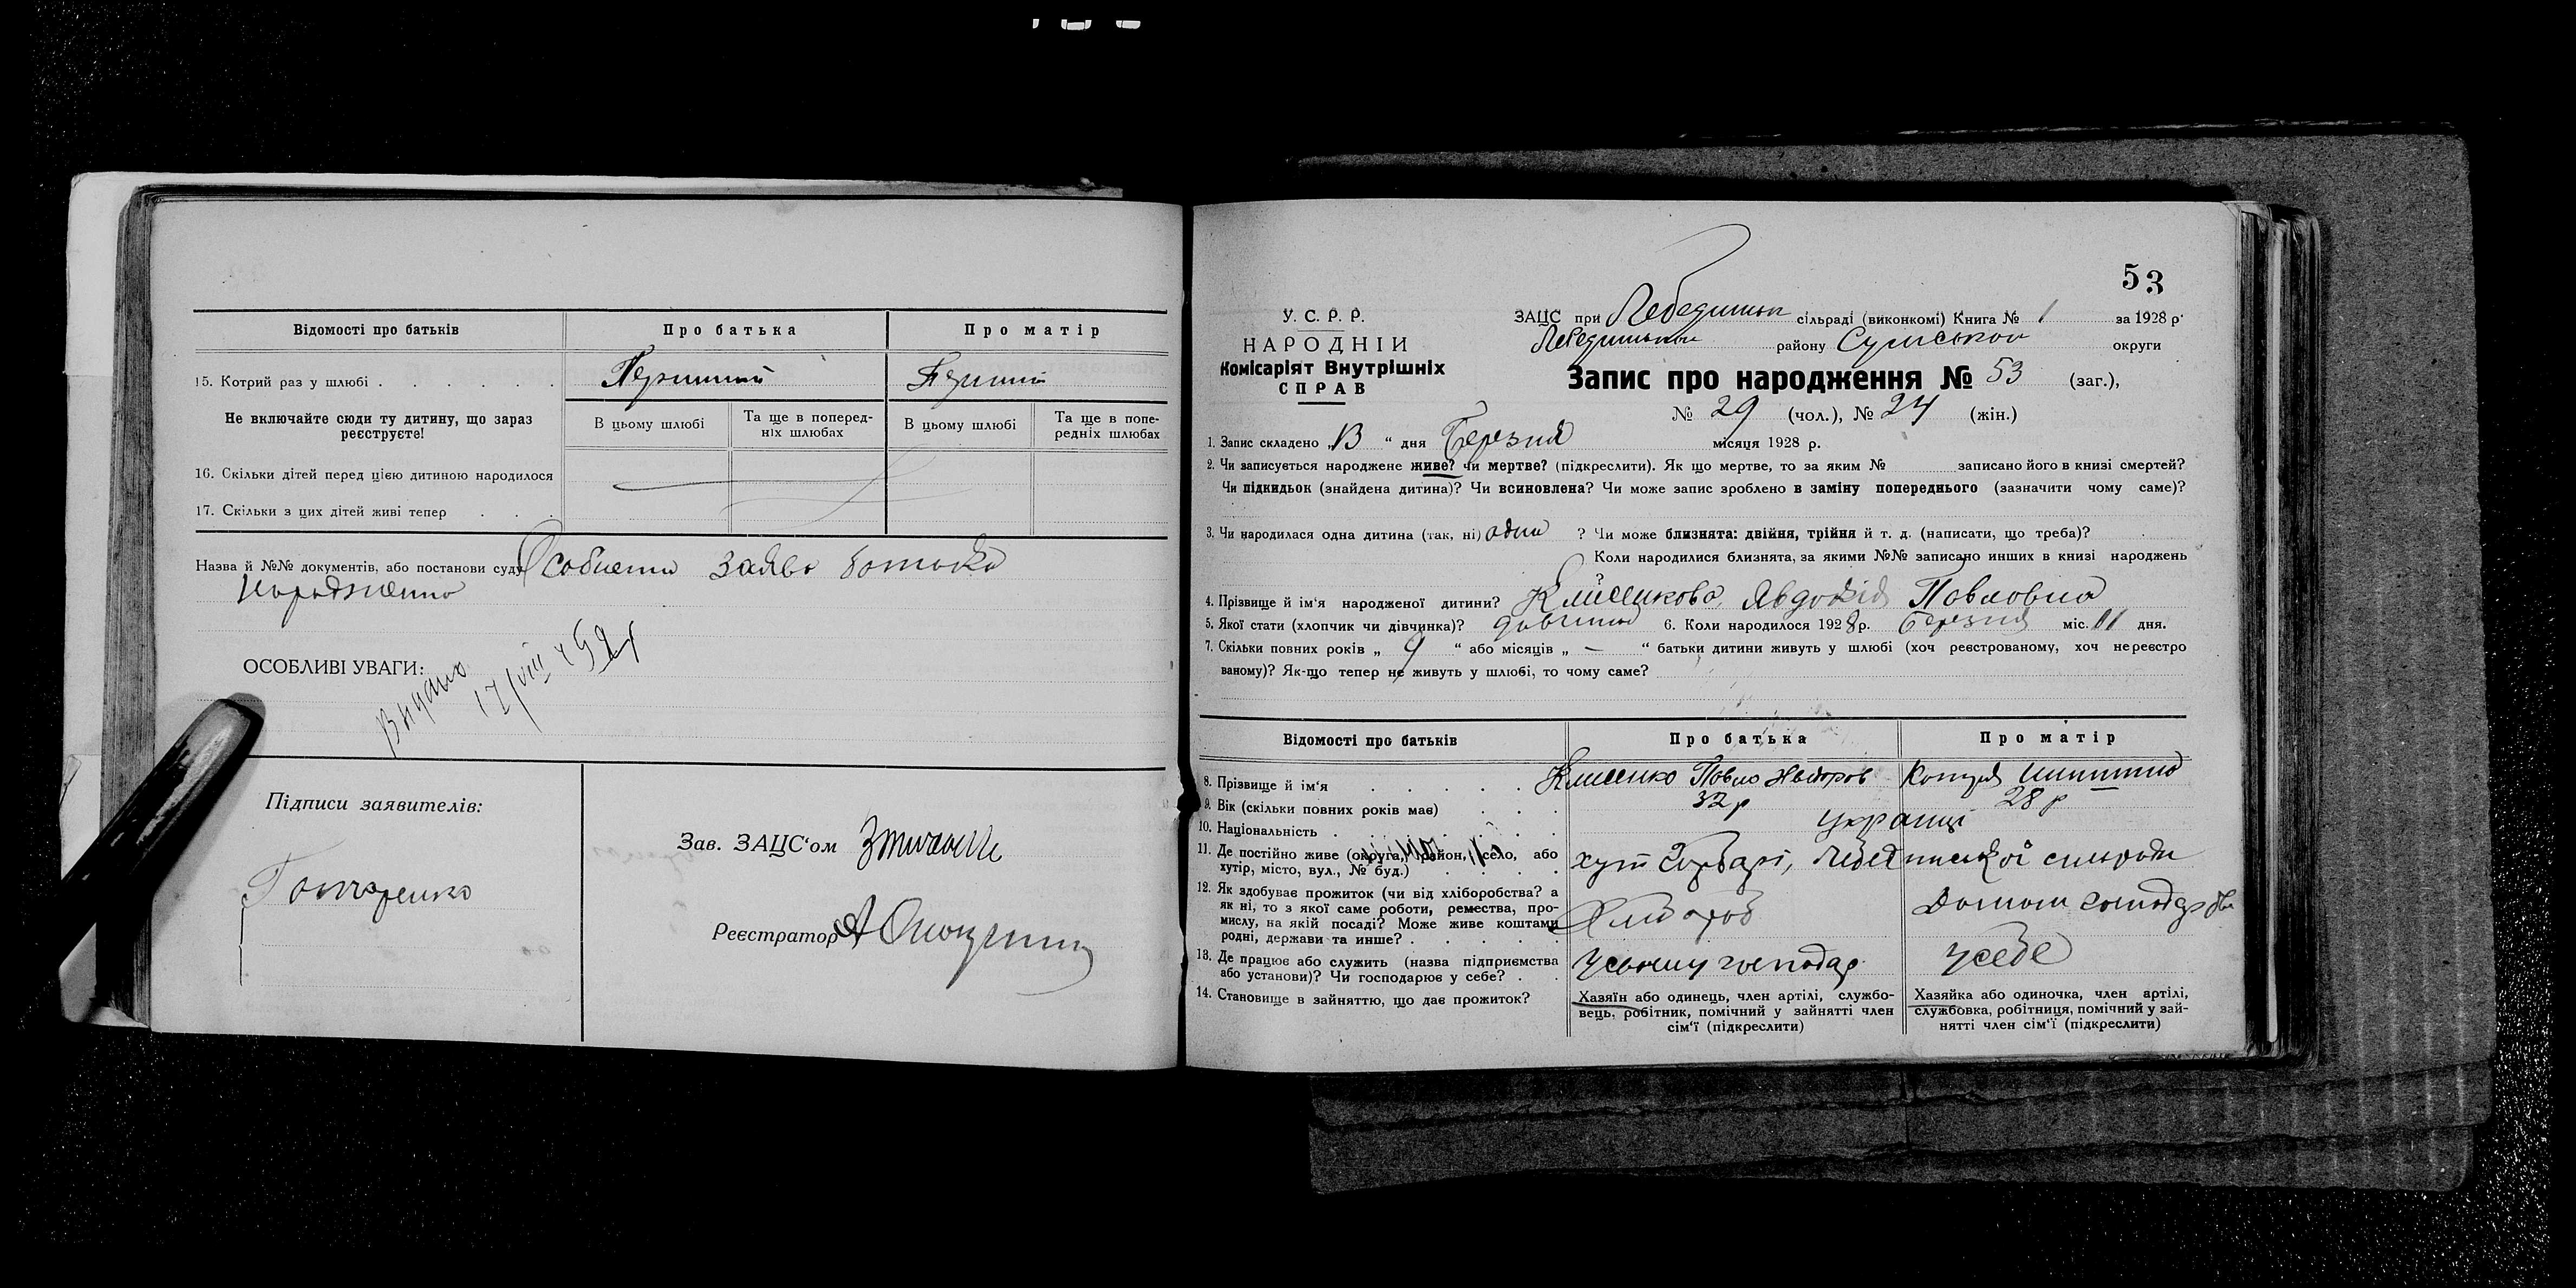 Відомості про батьків
Про батька
Про матір
15. Котрий раз у шлюбі . . . . . .
Перший
Перший
Не включайте сюди ту дитину, що зараз
реєструєте!
В цьому шлюбі
Та ще в поперед-
ніх шлюбах
В цьому шлюбі
Та ще в попе-
редніх шлюбах
16. Скільки дітей перед цією дитиною народилося
17. Скільки з цих дітей живі тепер . . .
Назва й №№ документів, або постанови суду Особиста заява батька
ОСОБЛИВІ УВАГИ:
Видано
17/VIII 45
Підписи заявителів:
Гончаренко
Зав. ЗАЦС'ом
Реєстратор
53
У. С. Р. Р.
НАРОДНІЙ
Комісаріят Внутрішніх
СПРАВ
ЗАЦС при Лебединськ сільраді (виконкомі) Книга № 1 за 1928 р.
Лебединського району Сумської округи
Запис про народження № 53 (заг.),
№ 29 (чол.), № 24 (жін.)
1. Запис складено „13“ дня Березня місяця 1928 р.
2. Чи записується народжене живе? чи мертве? (підкреслити). Як що мертве, то за яким № записано його в книзі смертей?
Чи підкидьок (знайдена дитина)? Чи всиновлена? Чи може запис зроблено в заміну попереднього (зазначити чому саме)?
3. Чи народилася одна дитина (так, ні) одна ? Чи може близнята: двійня, трійня й т. д. (написати, що треба)?
Коли народилися близнята, за якими №№ записано инших в книзі народжень
?
4. Прізвище й ім'я народженої дитини? Явдокія Павловна
5. Якої стати (хлопчик чи дівчинка)? дівчина 6. Коли народилося 1928 р. Березня міс. 11 дня.
7. Скільки повних років „ 9 “ або місяців „ — “ батьки дитини живуть у шлюбі (хоч реєстрованому, хоч нереєстро
ваному)? Як-що тепер не живуть у шлюбі, то чому саме?
Відомості про батьків
Про батька
Про матір
8. Прізвище й ім'я . . . . .
Павло
9. Вік (скільки повних років має) . . .
32 р
28 р
10. Національність . . . . . .
Українці
11. Де постійно живе (округа, район, село, або
хутір, місто, вул., № буд.) . . . .
хут Лебединської сільради
12. Як здобуває прожиток (чи від хліборобства? а
як ні, то з якої саме роботи, ремества, про-
мислу, на якій посаді? Може живе коштами
родні, держави та инше? . . . . .
Хлібороб
Домаш господарство
13. Де працює або служить (назва підприємства
або установи)? Чи господарює у себе? . .
У своему господар
у себе
14. Становище в зайняттю, що дає прожиток?
Хазяїн або одинець, член артілі, службо-
вець, робітник, помічний у зайнятті член
сім'ї (підкреслити)
Хазяйка або одиночка, член артілі,
службовка, робітниця, помічний у зай-
нятті член сім'ї (підкреслити)